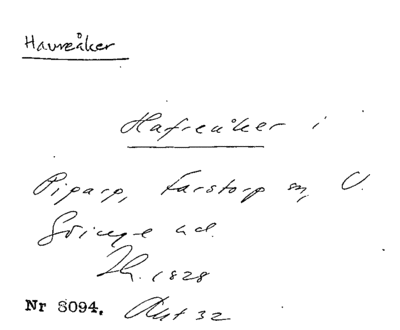 Havreåker
Hafreåker i
Piparp, Farstorp sn, V.
Göinge hd.
Lh. 1828
Nr 8094. Akt 32